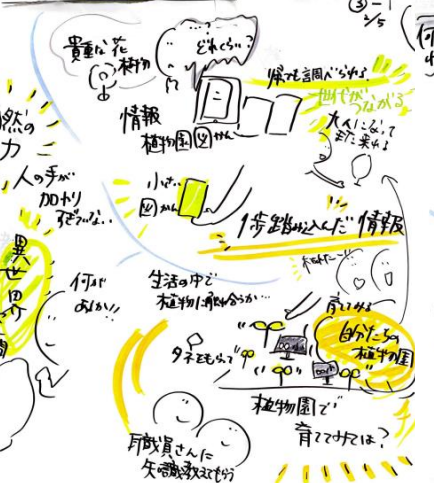 ③-1
2/5
貴重な花
植物
どれくらい?
帰っても調べられる
世代がつながる
大人になって
また来れる
情報
植物園図かん
人の手が
加わり
すぎていない
小さい
図かん
1歩踏み込んだ情報
異世界
何が
あるか!!
生活の中で
植物に触れ合うか…
育ててみる
自分たちの
植物園
タネをもらって
植物園で
育ててみては?
職員さんに
知識教えてもらう